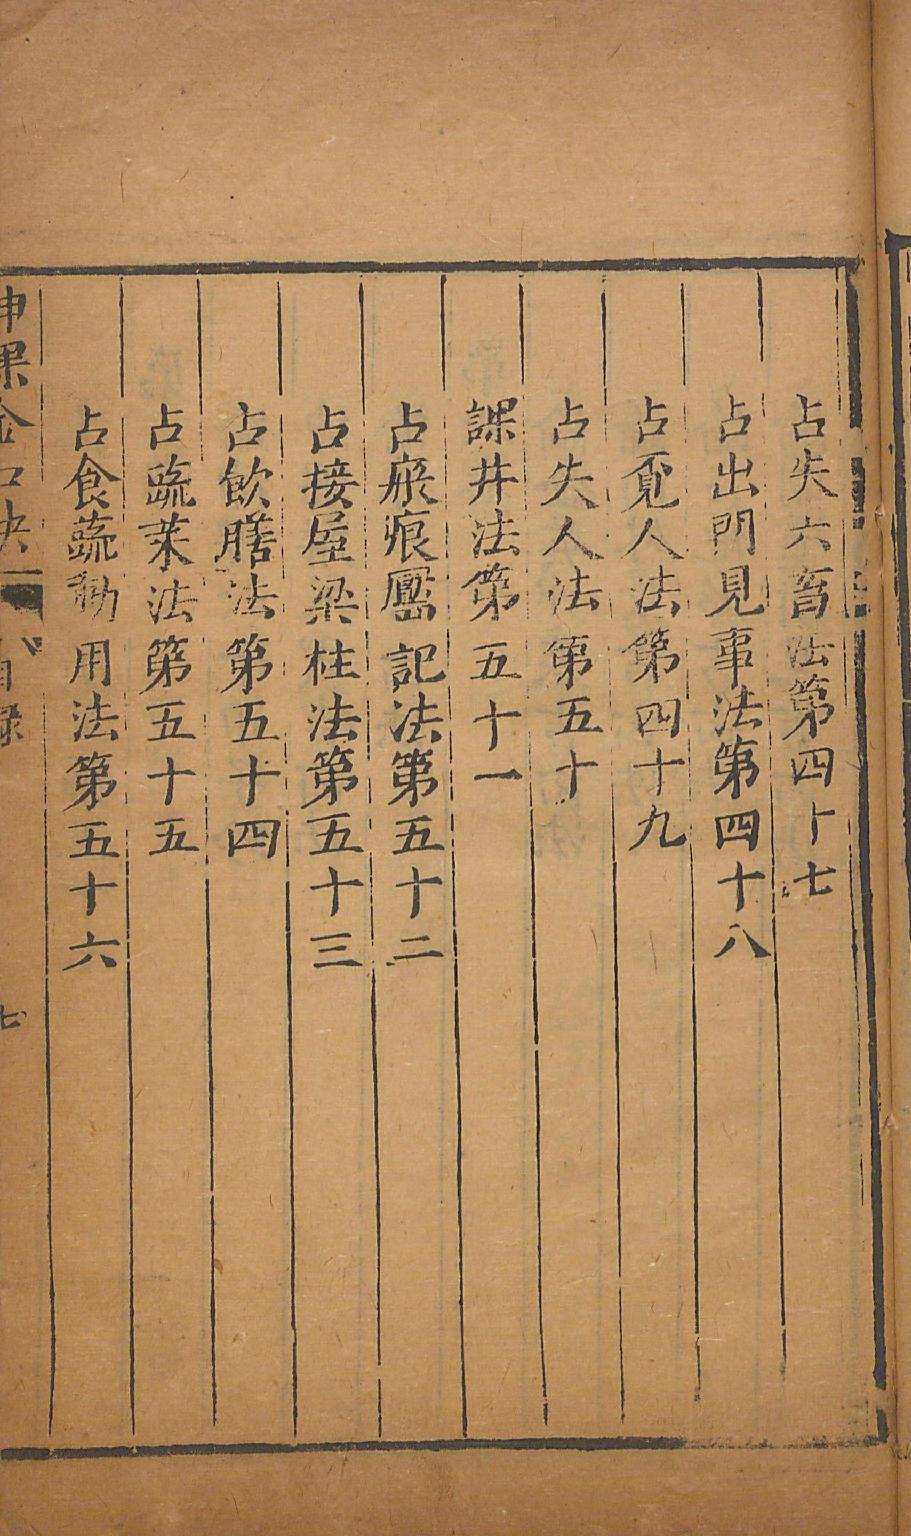 占失六畜法第四十七
占出門見事法第四十八
占覔人法第四十九
占失人法第五十
課井法第五十一
占瘢痕靨記法第五十二
占接屋梁柱法第五十三
占飲膳法第五十四
占蔬菜法第五十五
占食蔬勧用法第五十六
神課金口訣 目録 七